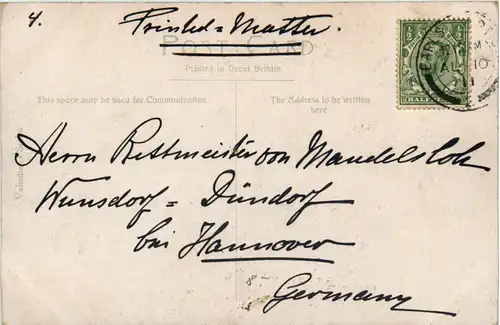 4. Printed = Matter.
POST CARD
Printed in Great Britain
This space may be used for Communication
The Address to be written
here
Herrn Rittmeister von Mandelsloh
Wunsdorf = Dündorf
bei Hannover
Germany
HALF